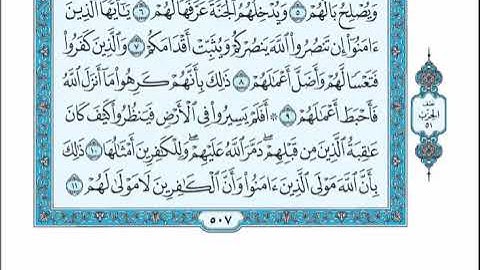 وَيُصْلِحُ بَالَهُمْ ۝٥ وَيُدْخِلُهُمُ ٱلْجَنَّةَ عَرَّفَهَا لَهُمْ ۝٦ يَٰٓأَيُّهَا ٱلَّذِينَ
ءَامَنُوٓا۟ إِن تَنصُرُوا۟ ٱللَّهَ يَنصُرْكُمْ وَيُثَبِّتْ أَقْدَامَكُمْ ۝٧ وَٱلَّذِينَ كَفَرُوا۟
فَتَعْسًا لَّهُمْ وَأَضَلَّ أَعْمَٰلَهُمْ ۝٨ ذَٰلِكَ بِأَنَّهُمْ كَرِهُوا۟ مَآ أَنزَلَ ٱللَّهُ
فَأَحْبَطَ أَعْمَٰلَهُمْ ۝٩ ۞ أَفَلَمْ يَسِيرُوا۟ فِى ٱلْأَرْضِ فَيَنظُرُوا۟ كَيْفَ كَانَ
عَٰقِبَةُ ٱلَّذِينَ مِن قَبْلِهِمْ ۖ دَمَّرَ ٱللَّهُ عَلَيْهِمْ ۖ وَلِلْكَٰفِرِينَ أَمْثَٰلُهَا ۝١٠ ذَٰلِكَ
بِأَنَّ ٱللَّهَ مَوْلَى ٱلَّذِينَ ءَامَنُوا۟ وَأَنَّ ٱلْكَٰفِرِينَ لَا مَوْلَىٰ لَهُمْ ۝١١
٥٠٧
نصف
الحزب
٥١